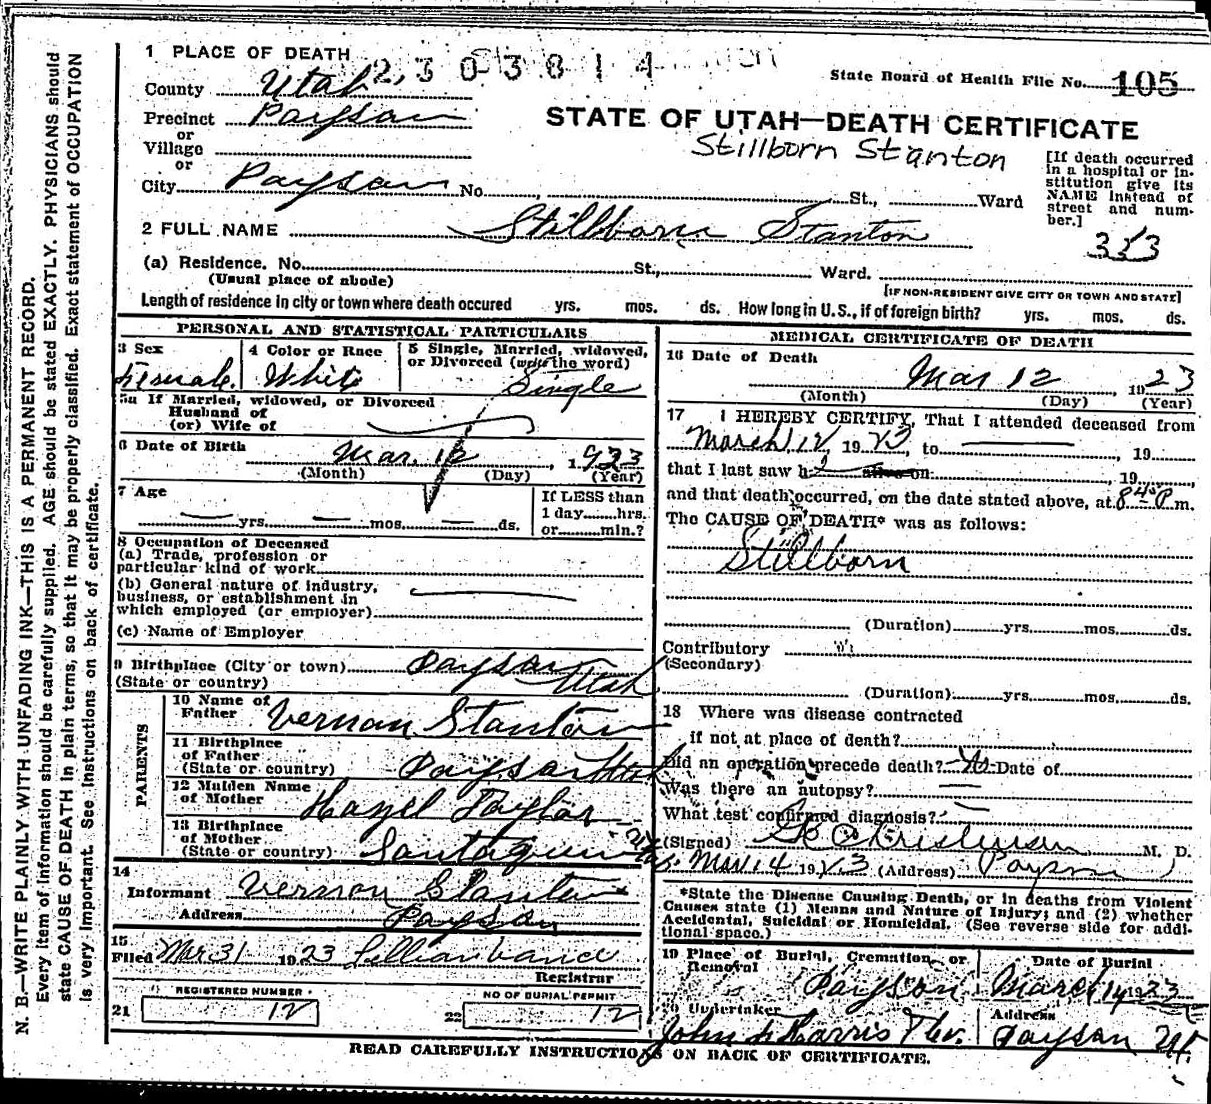 1 PLACE OF DEATH 2303814
State Board of Health File No. 105
County Utah
Precinct Payson
STATE OF UTAH—DEATH CERTIFICATE
or
Village
Stillborn Stanton
or
City Payson No. St., Ward
[If death occurred in a hospital or institution give its NAME instead of street and number.]
333
2 FULL NAME Stillborn Stanton
(a) Residence. No. St., Ward.
(Usual place of abode)
[IF NON-RESIDENT GIVE CITY OR TOWN AND STATE]
Length of residence in city or town where death occured yrs. mos. ds. How long in U.S., if of foreign birth? yrs. mos. ds.
PERSONAL AND STATISTICAL PARTICULARS
3 Sex
Female
4 Color or Race
White
5 Single, Married, widowed,
or Divorced (write the word)
Single
5a If Married, widowed, or Divorced
Husband of
(or) Wife of
6 Date of Birth Mar. 12, 1923
(Month) (Day) (Year)
7 Age
— yrs. — mos. — ds.
If LESS than
1 day......hrs.
or......min.?
8 Occupation of Deceased
(a) Trade, profession or
particular kind of work
(b) General nature of industry,
business, or establishment in
which employed (or employer)
(c) Name of Employer
9 Birthplace (City or town) Payson
(State or country) Utah
PARENTS
10 Name of
Father Vernon Stanton
11 Birthplace
of Father
(State or country) Payson Utah
12 Maiden Name
of Mother Hazel Taylor
13 Birthplace
of Mother
(State or country) Santaquin Utah
14
Informant Vernon Stanton
Address Payson
15
Filed Mar 31 1923 Lillian Vance
Registrar
REGISTERED NUMBER
21 12
NO OF BURIAL PERMIT
22 12
MEDICAL CERTIFICATE OF DEATH
16 Date of Death
Mar 12 1923
(Month) (Day) (Year)
17 I HEREBY CERTIFY, That I attended deceased from
March 12, 1923, to —, 19
that I last saw h alive on, 19
and that death occurred, on the date stated above, at 8 45 P m.
The CAUSE OF DEATH* was as follows:
Stillborn
(Duration) yrs. mos. ds.
Contributory
(Secondary)
(Duration) yrs. mos. ds.
18 Where was disease contracted
if not at place of death?
Did an operation precede death? No Date of
Was there an autopsy? —
What test confirmed diagnosis? —
(Signed) M. D.
Mar 14 1923 (Address) Payson
*State the Disease Causing Death, or in deaths from Violent
Causes state (1) Means and Nature of Injury; and (2) whether
Accidental, Suicidal or Homicidal. (See reverse side for addi-
tional space.)
19 Place of Burial, Cremation, or
Removal
Payson
Date of Burial
March 14 1923
Undertaker
John Harris
Address
Payson Ut.
READ CAREFULLY INSTRUCTIONS ON BACK OF CERTIFICATE.
N. B.—WRITE PLAINLY WITH UNFADING INK—THIS IS A PERMANENT RECORD.
Every item of information should be carefully supplied. AGE should be stated EXACTLY. PHYSICIANS should
state CAUSE OF DEATH in plain terms, so that it may be properly classified. Exact statement of OCCUPATION
is very important. See instructions on back of certificate.